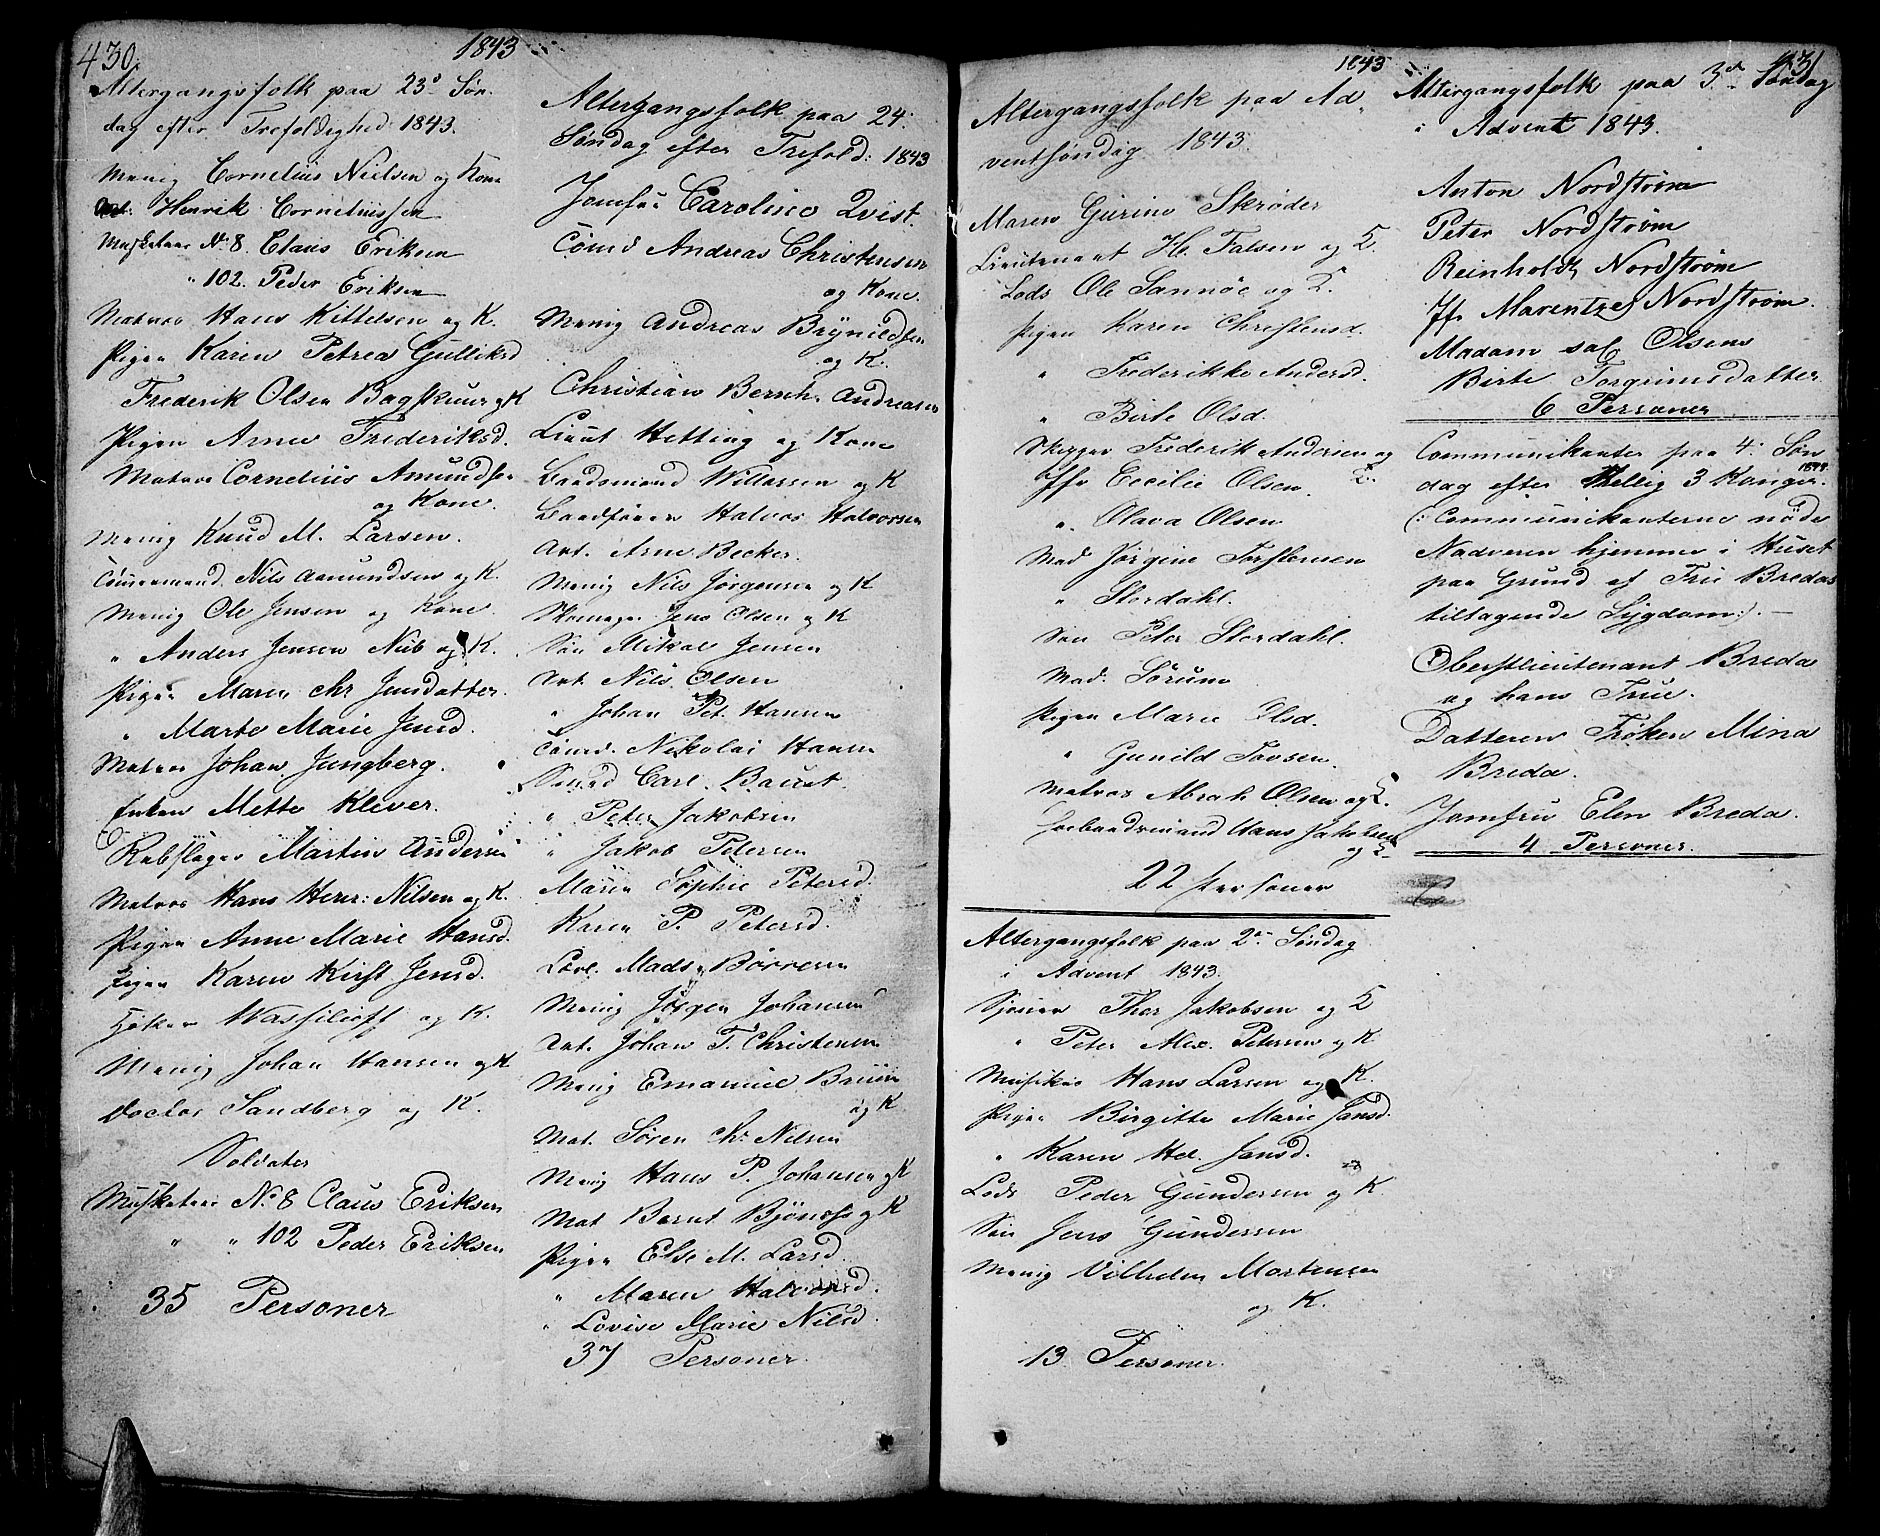 430.
1843
Altergangsfolk paa 23d Søn-
dag efter Trefoldighed 1843.
Menig Cornelius Nielsen og Kone
Art. Henrik Corneliussen
Musketeer No 8. Claus Eriksen
" 102. Peder Eriksen
Matros Hans Kittelsen og K.
Pigen Karen Petrea Gulliksd
Frederik Olsen Bagskuur og K
Pigen Arne Frederiksd.
Matros Cornelius Amundsen
og Kone.
Menig Knud M. Larsen.
Tømmermand Nils Aamundsen og K.
Menig Ole Jensen og Kone.
" Anders Jensen Nib og K.
Pigen Maren Chr Jensdatter.
" Marte Marie Jensd.
Matros Johan Jungberg.
Enken Mette Klever.
Rebslager Martin Andersen
Matros Hans Henr: Nilsen og K.
Pigen Anne Marie Hansd.
Pigen Karen Kirst Jensd.
Høker Wassilioff og K.
Menig Johan Hansen og K
Doctor Sandberg og K.
Soldater
Musketeer No 8 Claus Eriksen
" " 102 Peder Eriksen
35 Personer
Altergangsfolk paa 24.
Søndag efter Trefold: 1843
Jomfru Caroline Qvist.
Tømd Andreas Christensen
og Kone.
Menig Andreas Brynildsen
og K.
Christian Bernh. Andreasen
Lieut Hetting og Kone
Baadsmand Willassen og K
Baadfører Halvor Halvorsen
Art. Arne Becker.
Menig Nils Jørgensen og K
Skomager Jens Olsen og K
Søn Mikael Jensen
Art. Nils Olsen
" Johan Pet. Hansen
Tømd. Nikolai Hansen
Carl Bernt.
" Peter Jakobsen
" Jakob Petersen
Maren Sophie Petersd.
Karen P. Petersd.
Mads Børresen
Menig Jørgen Johansen
Art. Johan T. Christensen
Menig Emanuel Bruun
og K.
Mat. Søren Chr. Nilsen
Menig Hans P. Johansen og K
Mat Bernt Bjønnes og K
Pigen Else M. Larsd.
" Maren Halvorsd.
" Lovise Marie Nilsd.
37 Personer.
1843
431
Altergangsfolk paa Ad-
ventsøndag 1843.
Maren Gurine Skrøder
Lieutenant H. Falsen og K.
Lods Ole Sannøe og K.
Pigen Karen Christensd.
" Frederikke Andersd.
" Birte Olsd.
Skipper Frederik Andersen og
K.
Jfr Cecilie Olsen.
" Olava Olsen
Mad Jørgine Torstensen
" Stordahl.
Søn Peter Stordahl.
Mad. Sørum
Pigen Marie Olsd.
" Gunild Tovsen.
Matros Abrah. Olsen og K.
Hans Jakobsen
og K
22 Personer
Altergangsfolk paa 2en Søndag
i Advent 1843.
Thor Jakobsen og K
" Peter Alex. Petersen og K
Musikus Hans Larsen og K.
Pigen Birgitte Marie Jansd.
" Karen Hel. Jansd.
Lods Peder Gundersen og K.
Søn Jens Gundersen
Menig Vilhelm Mortensen
og K.
13 Personer.
Altergangsfolk paa 3de Søndag
i Advent 1843.
Anton Nordstrøm
Peter Nordstrøm
Reinholdt Nordstrøm
Jfr. Marentze Nordstrøm.
Madam sal. Olsens
Birte Torgrimsdatter
6 Personer
Communikanter paa 4. Søn
dag efter Hellig 3 Konger. 1844.
(: Communikanterne nøde
Nadveren hjemme i Huset
paa Grund af Frue Bredas
tiltagende Sygdom :) —
Oberstlieutenant Breda
og hans Frue.
Datteren Frøken Mina
Breda.
Jomfru Elen Breda.
4 Personer.